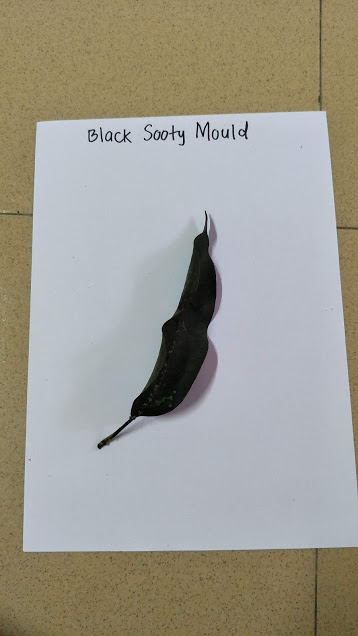 Black Sooty Mould